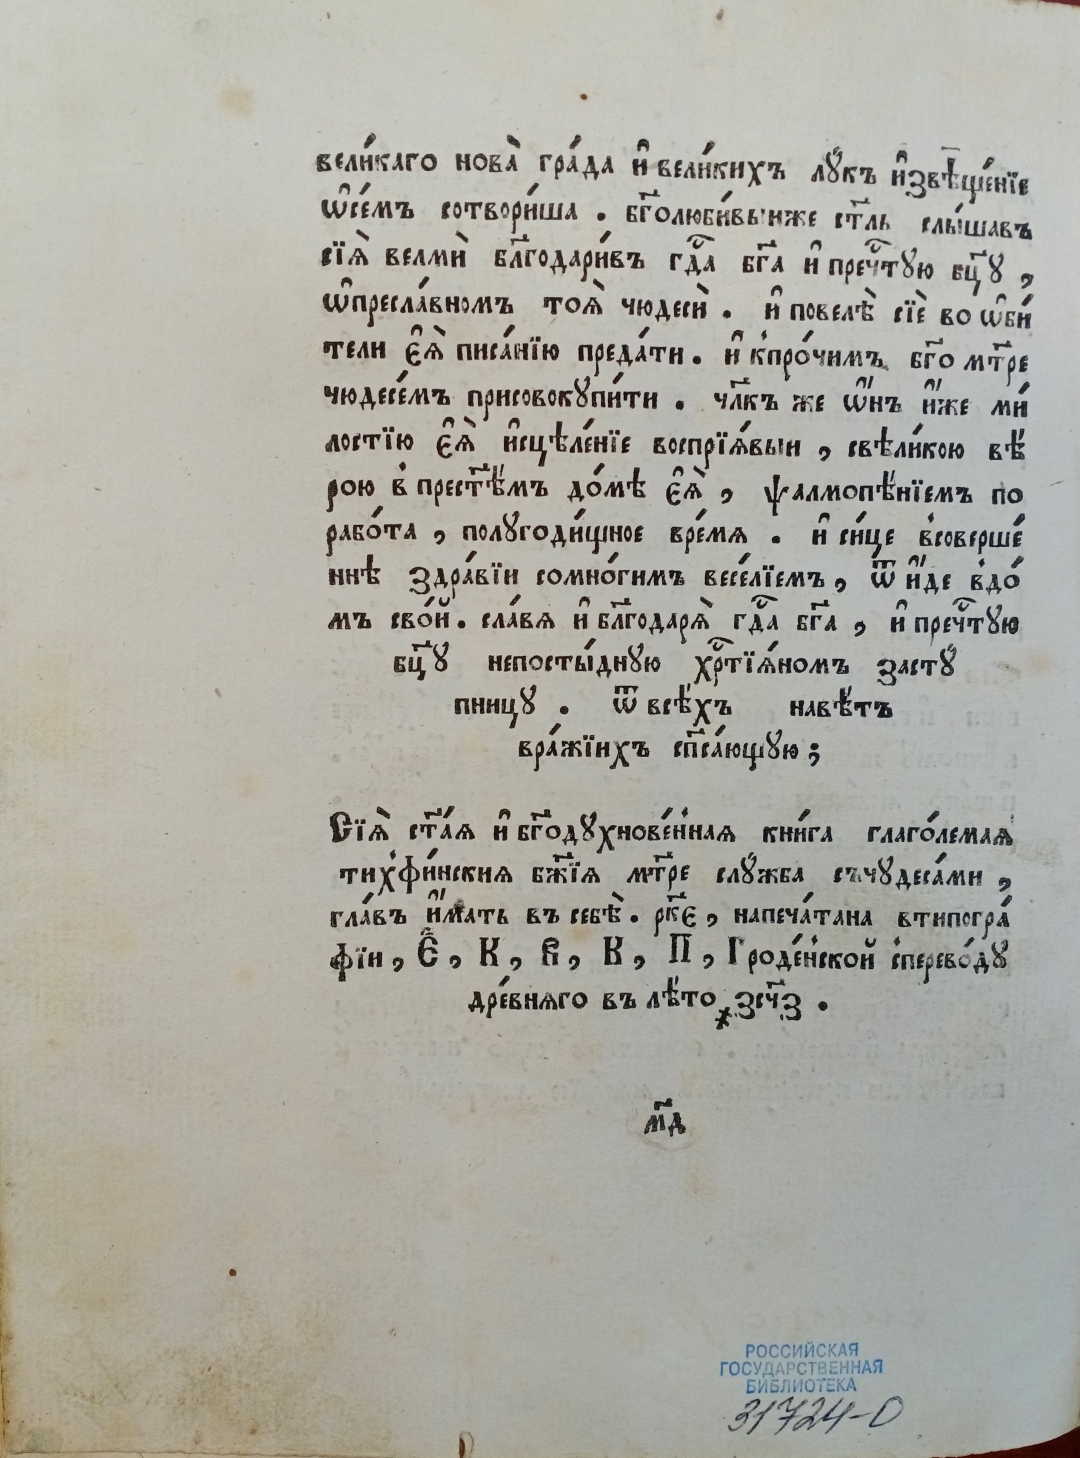 вели́каго нова̀ гра́да и҆ вели́кихъ лу́къ и҆звѣще́нїе
ѡ҆се́мъ сотвори́ша . бг҃олюби́выиже ст҃ль слы́шавъ
сїѧ̀ велмѝ блг҃одари́въ гдⷭ҇а бг҃а и҆ преч҇тую бцⷣу ,
ѡ҆пресла́вномъ тоѧ̀ чюдесѝ . и҆ повелѣ̀ сїѐ во ѡ҆би́
тели є҆ѧ̀ писа́нїю преда́ти . и҆ кпро́чимъ бг҃о мт҃ре
чюдесе́мъ присовокупи́ти . чл҃къ же ѡ҆́нъ и҆́же ми́
лостїю є҆ѧ̀ и҆сцѣле́нїе воспрїѧ́выи , свѣли́кою вѣ́
рою в прест҃ѣ́мъ до́мѣ є҆ѧ̀ , ѱалмопѣ́нїемъ по
рабо́та , полугоди́щное вре́мѧ . и҆ си́це всоверше́
ннѣ здра́вїи сомно́гимъ весе́лїемъ , ѿ и҆́де вдо́
мъ сво́й . сла́вѧ и҆ блг҃одарѧ̀ гдⷭ҇а бг҃а , и҆ преч҇тую
бцⷣу непосты́дную хрⷭ҇тїѧ́номъ засту́
пницу . ѿ всѣ́хъ навѣ́тъ
вра́жїихъ сп҃са́ющую ;
Сїѧ̀ ст҃а́ѧ и҆ бг҃одухнове́ннаѧ кни́га глаго́лемаѧ
тихфи́нскиѧ бж҃їѧ мт҃ре слу́жба съчудеса́ми ,
гла́въ и҆́мать въ себѣ̀ . рк҃є , напеча́тана втипогра́
фїи , Є҆́ , К , Я , К , П , Гроде́нской сперево́ду
дре́внѧго въ лѣ́то ҂зсч҃з .
мд҃
РОССИЙСКАЯ
ГОСУДАРСТВЕННАЯ
БИБЛИОТЕКА
31724-О